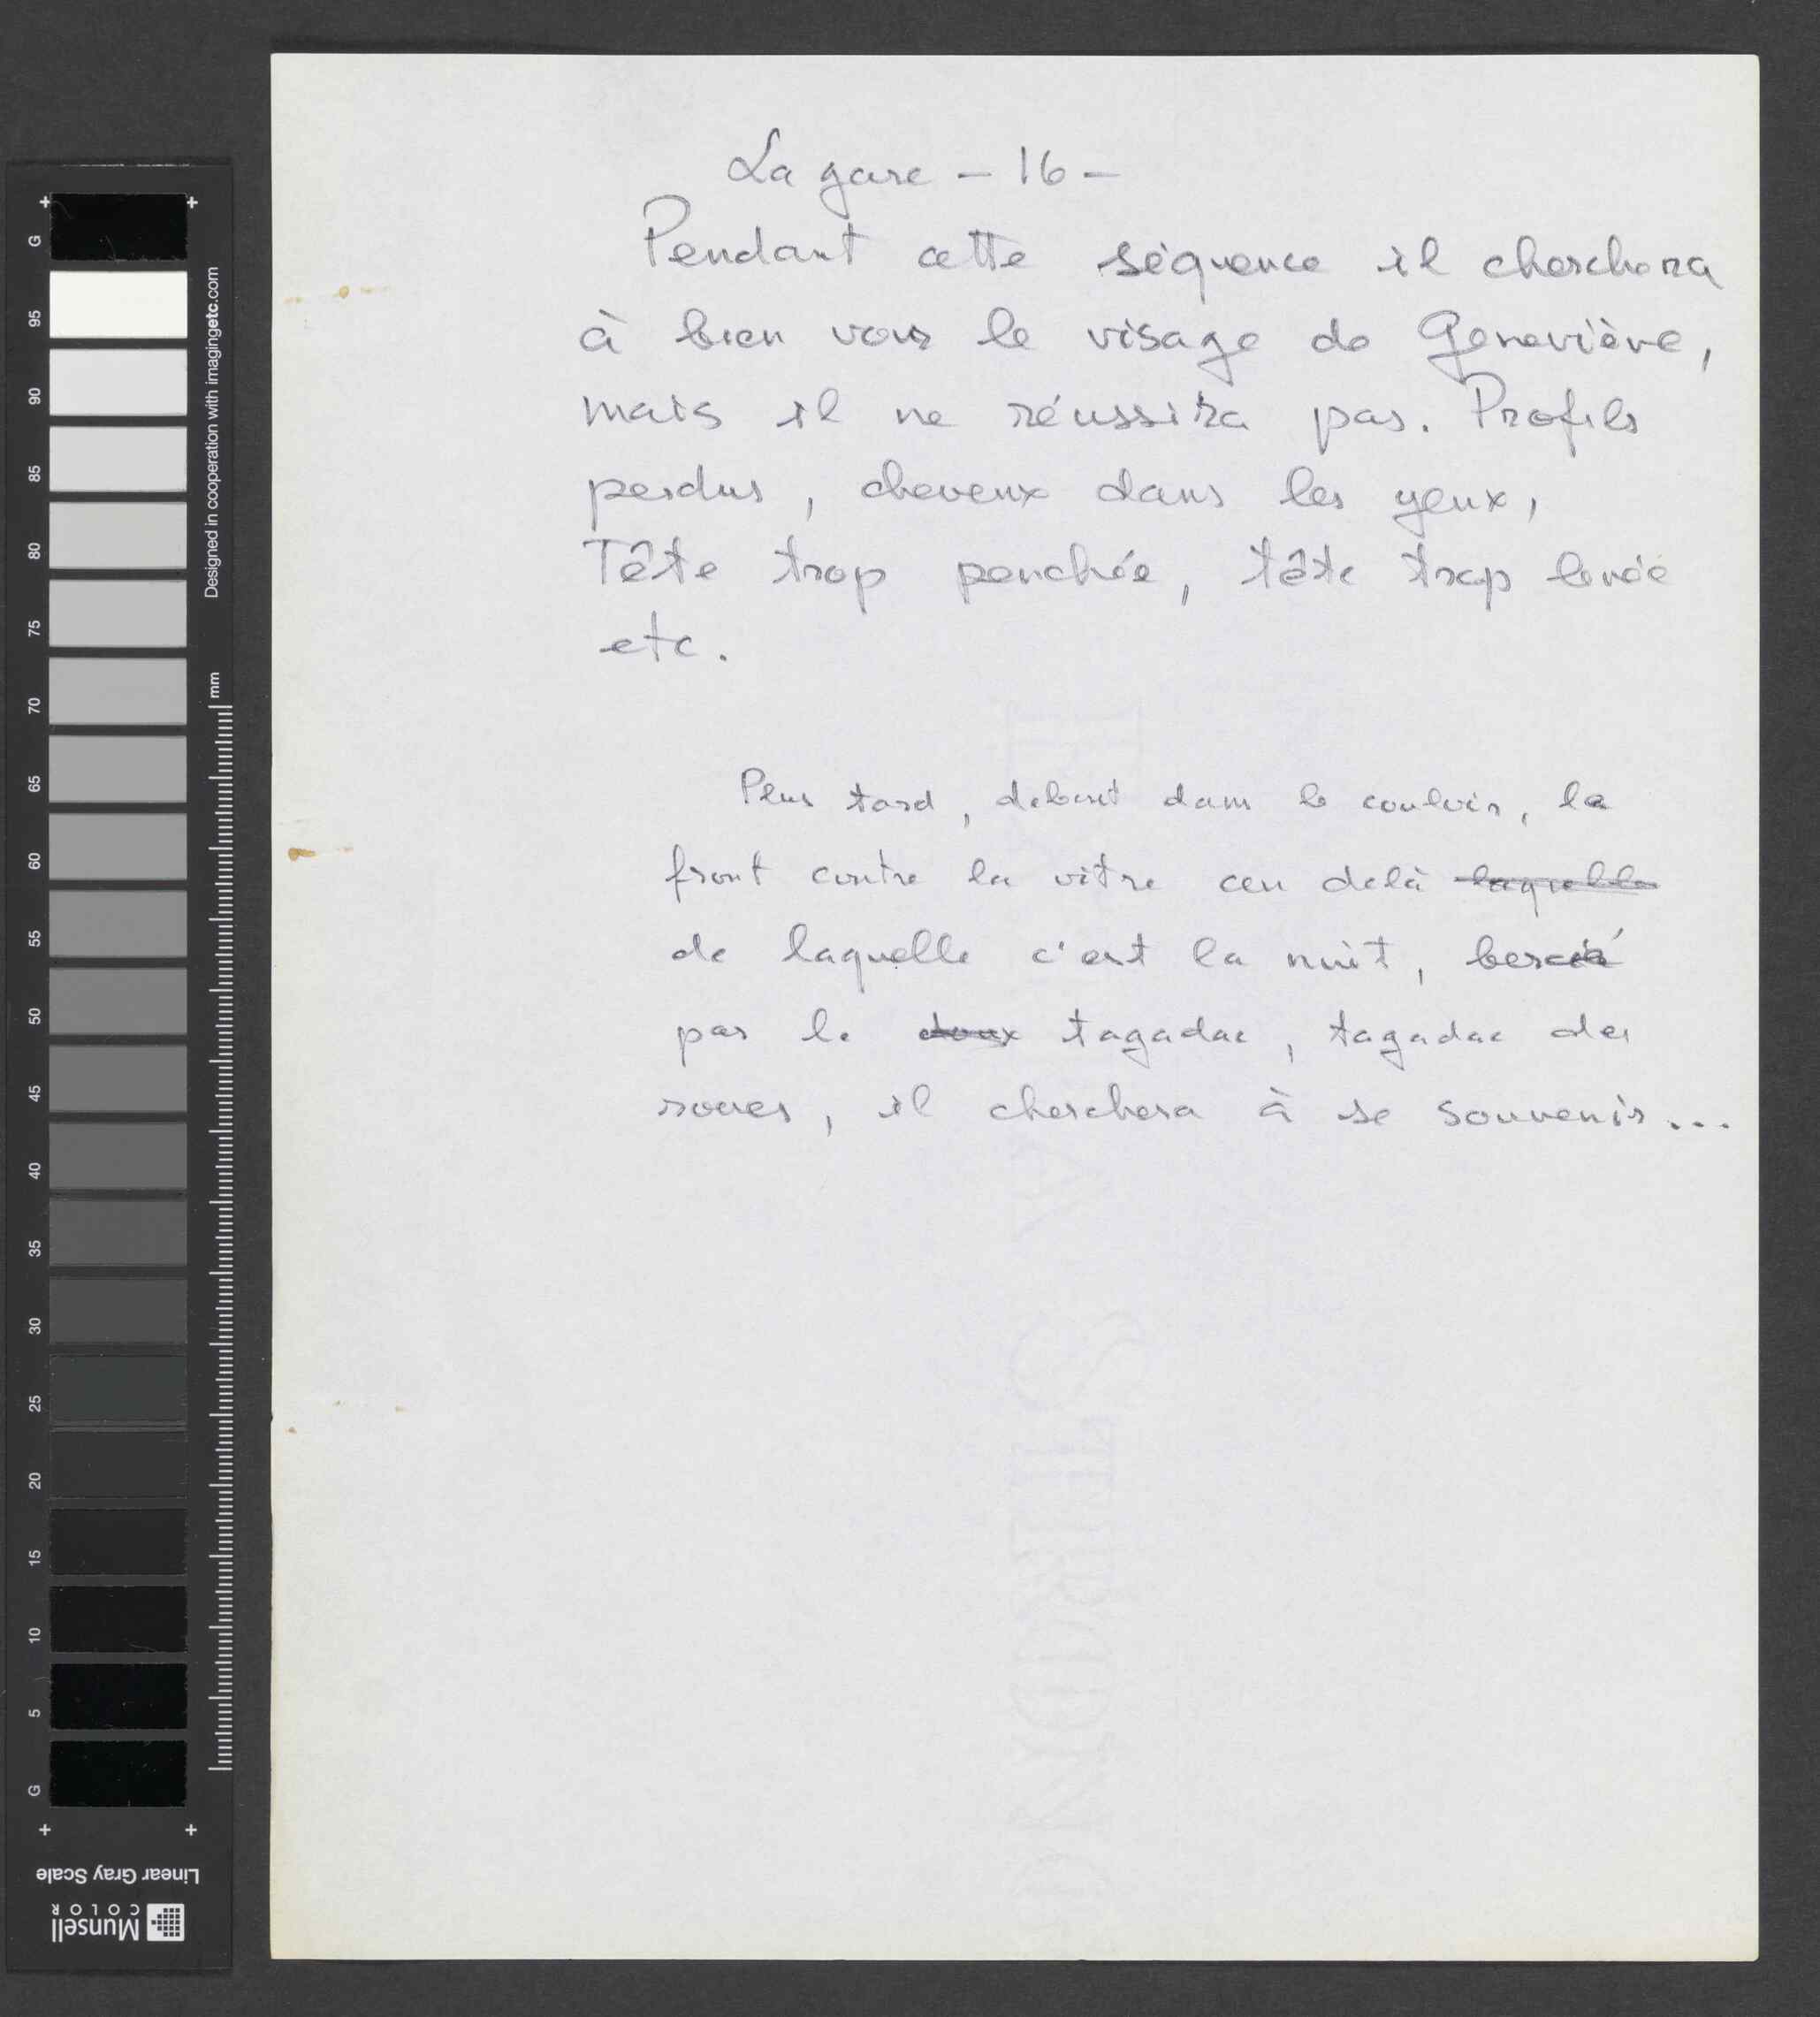 La gare – 16 –
Pendant cette séquence il cherchera
à bien voir le visage de Geneviève,
mais il ne réussira pas. Profils
perdus, cheveux dans les yeux,
Tête trop penchée, tête trop levée
etc.
Plus tard, debout dans le couloir, le
front contre la vitre au delà laquelle
de laquelle c'est la nuit, bercé
par le doux tagadac, tagadac des
roues, il cherchera à se souvenir...
G
95
90
85
80
75
70
65
60
55
50
45
40
35
30
25
20
15
10
5
G
Designed in cooperation with imagingetc.com
mm
Linear Gray Scale
Munsell
COLOR